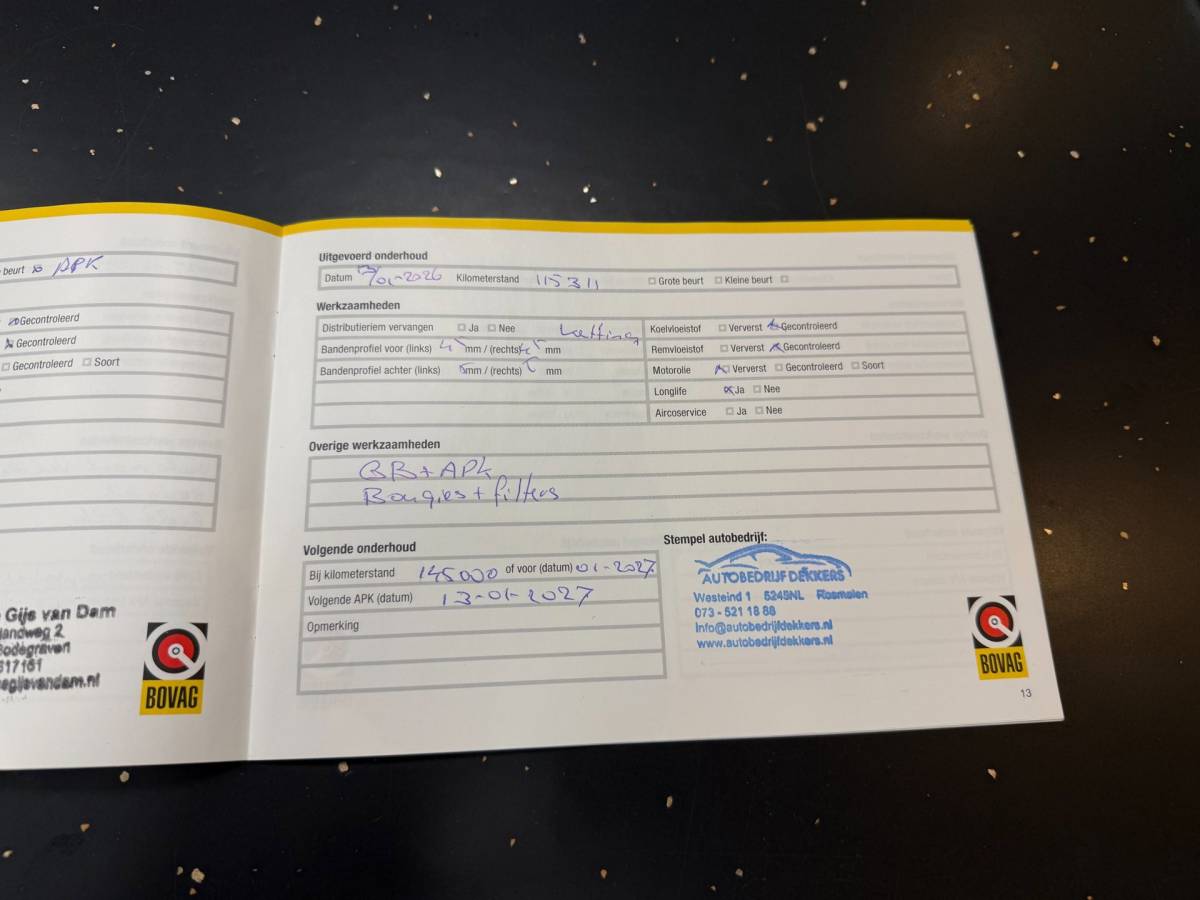 beurt APK
Gecontroleerd
Gecontroleerd
Gecontroleerd Soort
Gijs van Dam
andweg 2
Bodegraven
617161
egijsvandam.nl
BOVAG
Uitgevoerd onderhoud
Datum /01-2026 Kilometerstand 115311 Grote beurt Kleine beurt
Werkzaamheden
Distributieriem vervangen Ja Nee ketting
Bandenprofiel voor (links) 4,5 mm / (rechts) mm
Bandenprofiel achter (links) mm / (rechts) mm
Koelvloeistof Ververst Gecontroleerd
Remvloeistof Ververst Gecontroleerd
Motorolie Ververst Gecontroleerd Soort
Longlife Ja Nee
Aircoservice Ja Nee
Overige werkzaamheden
GB + APK
Bougies + filters
Volgende onderhoud
Bij kilometerstand 145000 of voor (datum) 01-2027
Volgende APK (datum) 13-01-2027
Opmerking
Stempel autobedrijf:
AUTOBEDRIJF DEKKERS
Westeind 1 5245NL Rosmalen
073 - 521 18 88
Info@autobedrijfdekkers.nl
www.autobedrijfdekkers.nl
BOVAG
13